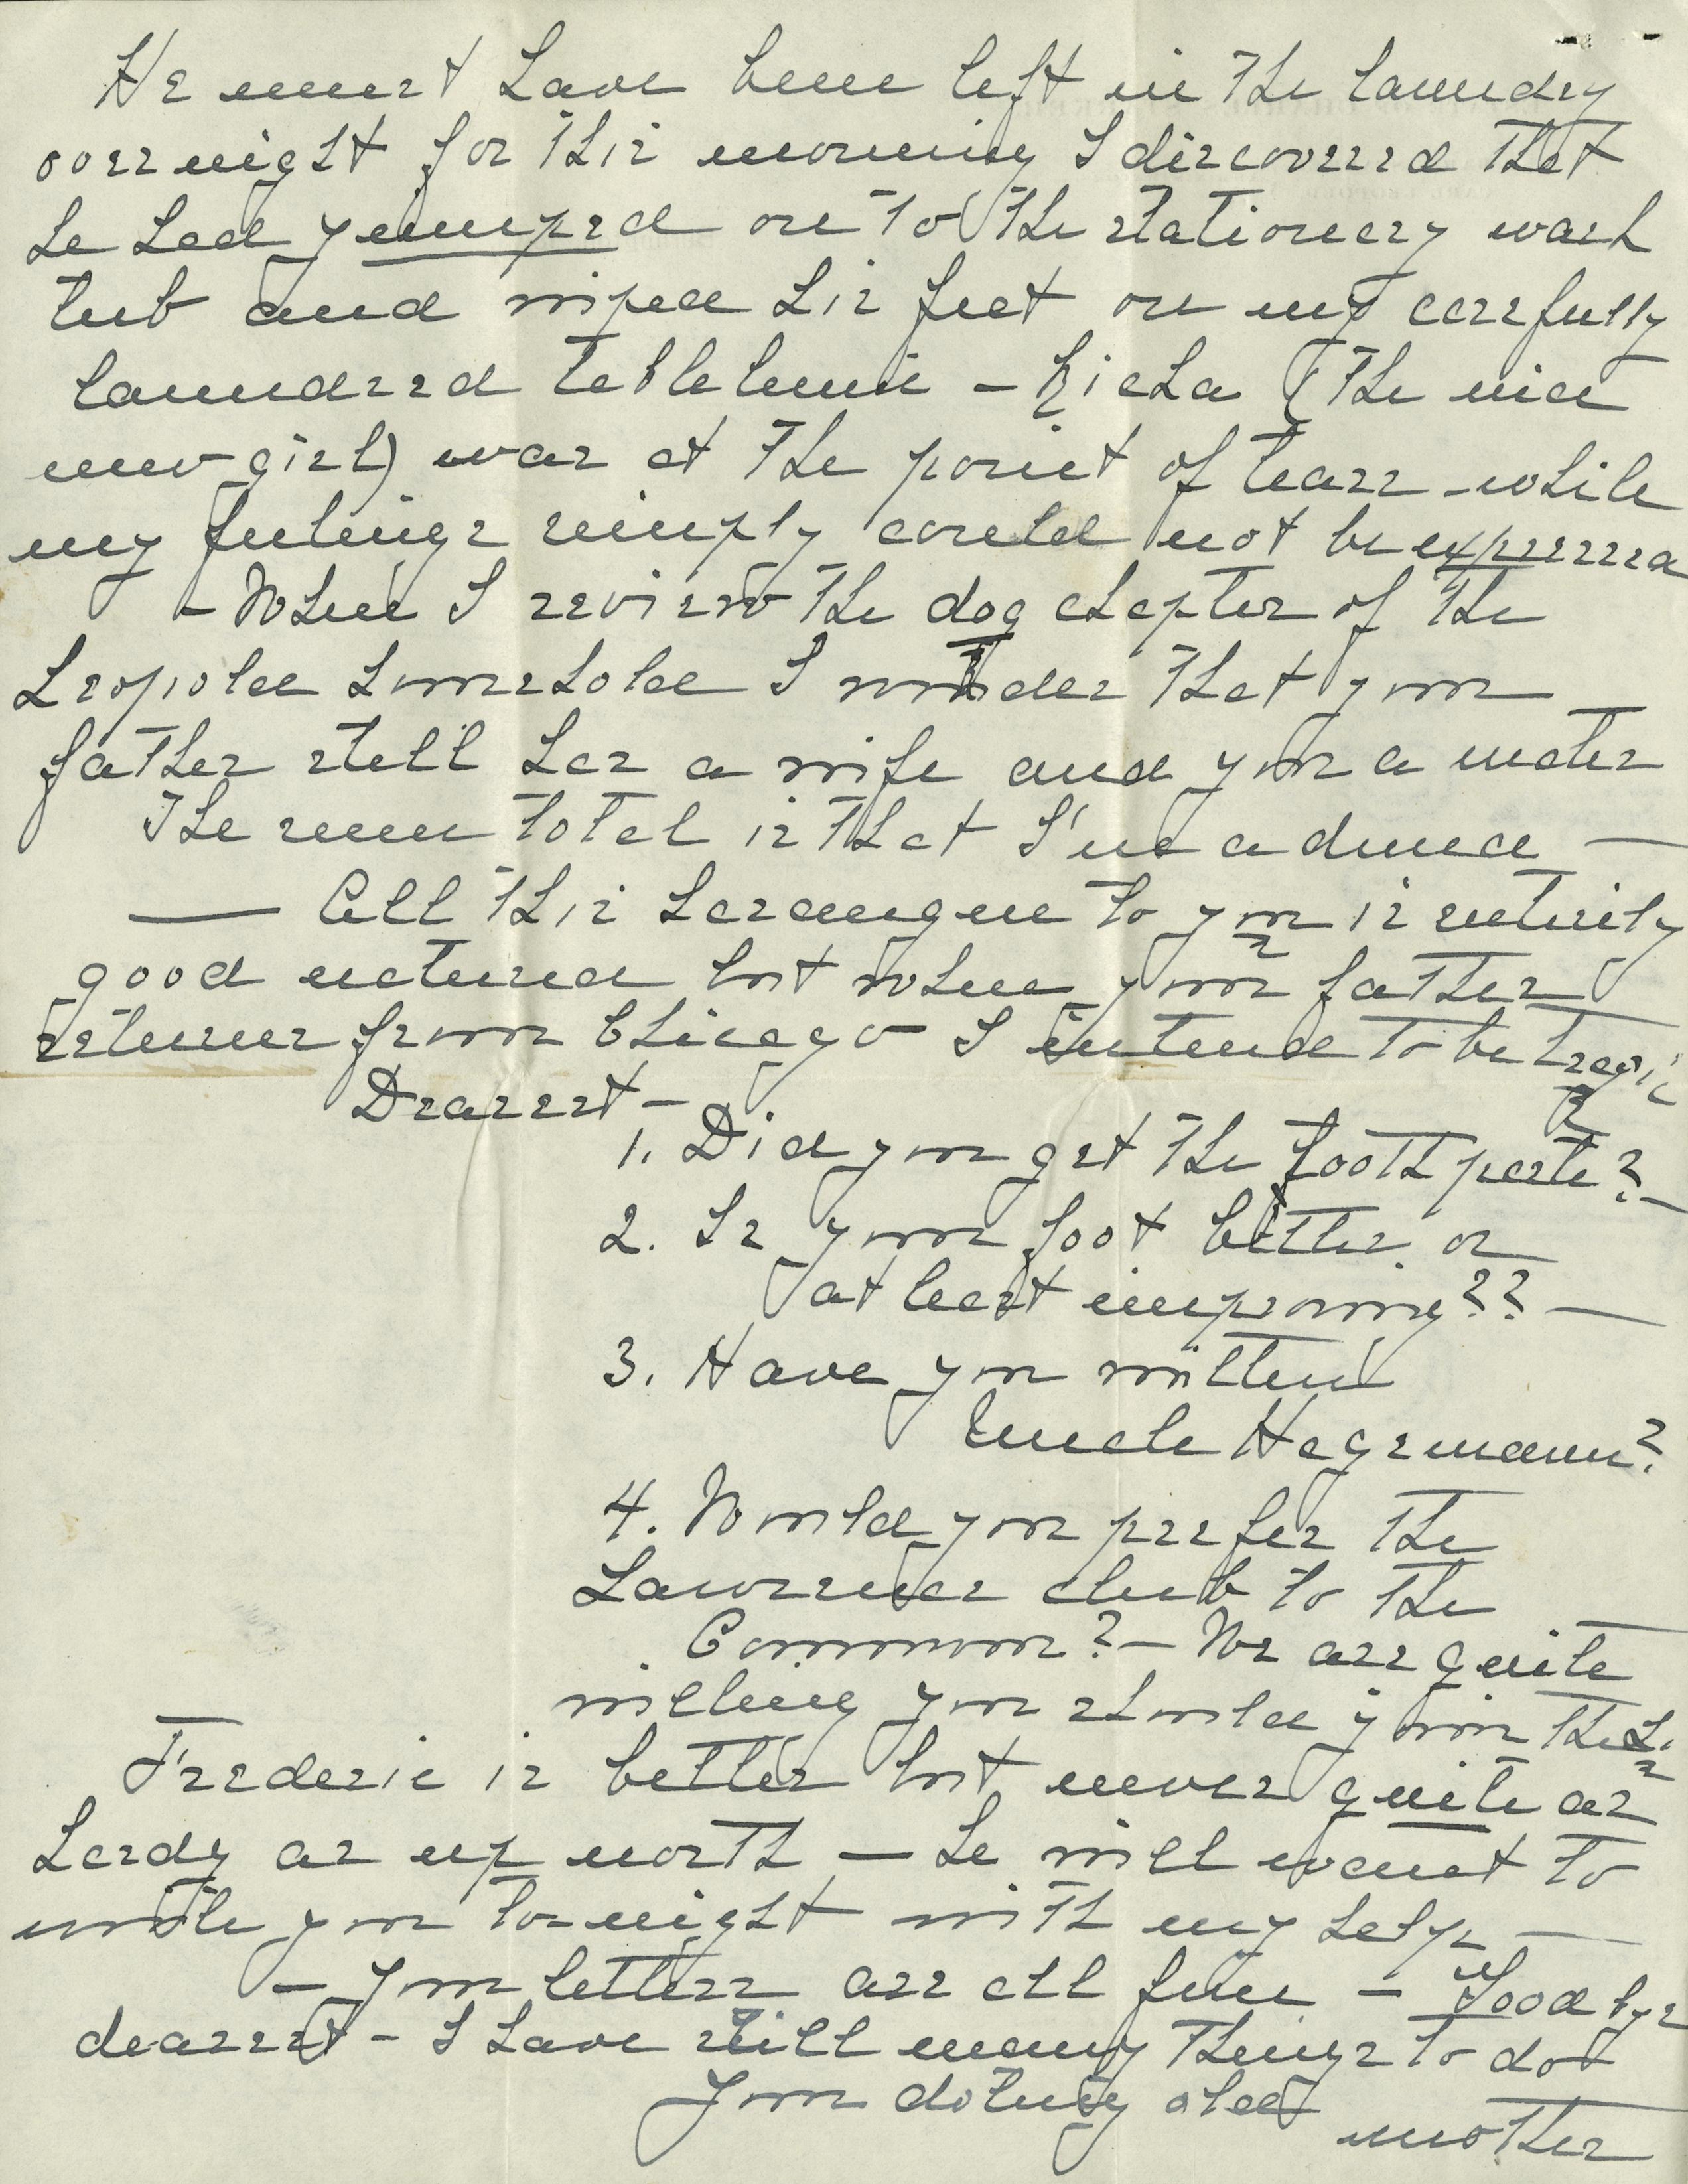 He must have been left in the laundry
overnight for this morning I discovered that
he had yumped on to the stationery wash
tub and wiped his feet on my carefully
laundered table linen - (the nice
new girl) was at the point of tears - while
my feelings simply could not be expressed
- When I review the dog chapter of the
Leopold household I wonder that your
father still has a wife and you a mater
The sum total is that I'm a dunce -
- All this harangue to you is entirely
good natured but when your father
returns from Chicago I intend to be tragic
Dearest -
1. Did you get the tooth paste? -
2. Is your foot better or
at least improving?? -
3. Have you written
Uncle Hagemann?
4. Would you prefer the
Lawrence club to the
Common? - We are quite
willing you should join the L.
Frederic is better but never quite as
hardy as up north - he will want to
write you to-night with my help -
- Your letters are all fine - Goodbye
dearest - I have still many things to do
Your doting old
mother